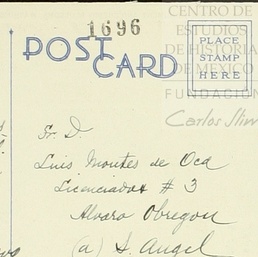 CENTRO DE
ESTUDIOS
DE HISTORIA
DE MEXICO
FUNDACIÓN
Carlos Slim
1696
POST CARD
PLACE
STAMP
HERE
Sr. D.
Luis Montes de Oca
Licenciados # 3
Alvaro Obregon
(a) S. Angel